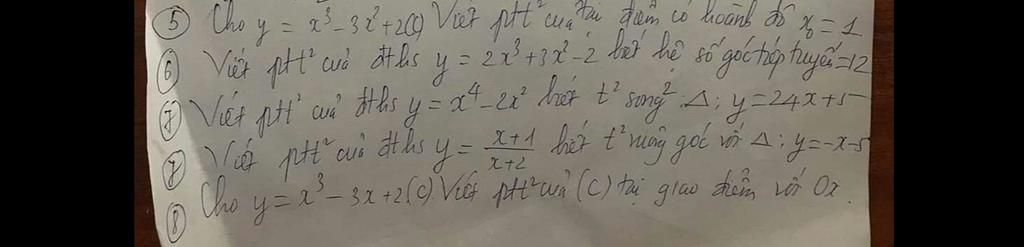 ⑤ Cho y = x³ - 3x² + 2 (C) Viết ptt² của tại điểm có hoành độ x₀ = 1
⑥ Viết ptt² của đths y = 2x³ + 3x² - 2 biết hệ số góc tiếp tuyến = 12
⑦ Viết ptt² của đths y = x⁴ - 2x² biết t² song² Δ: y = 24x + 5
⑦ Viết ptt² của đths y = \frac{x+1}{x+2} biết t² vuông góc với Δ: y = -x - 5
⑧ Cho y = x³ - 3x + 2 (C) Viết ptt² của (C) tại giao điểm với Ox.